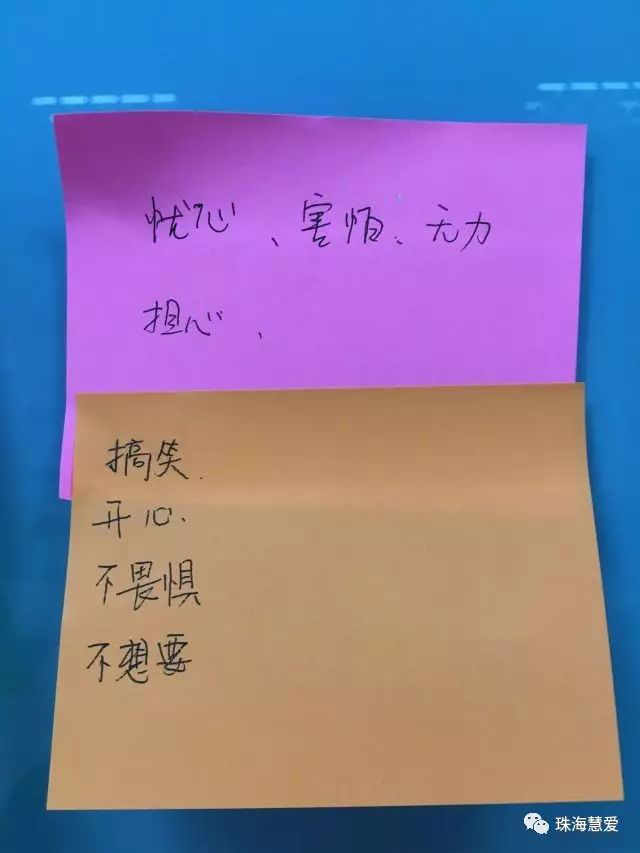 忧心、害怕、无力
担心、
搞笑.
开心.
不畏惧
不想要
珠海慧爱